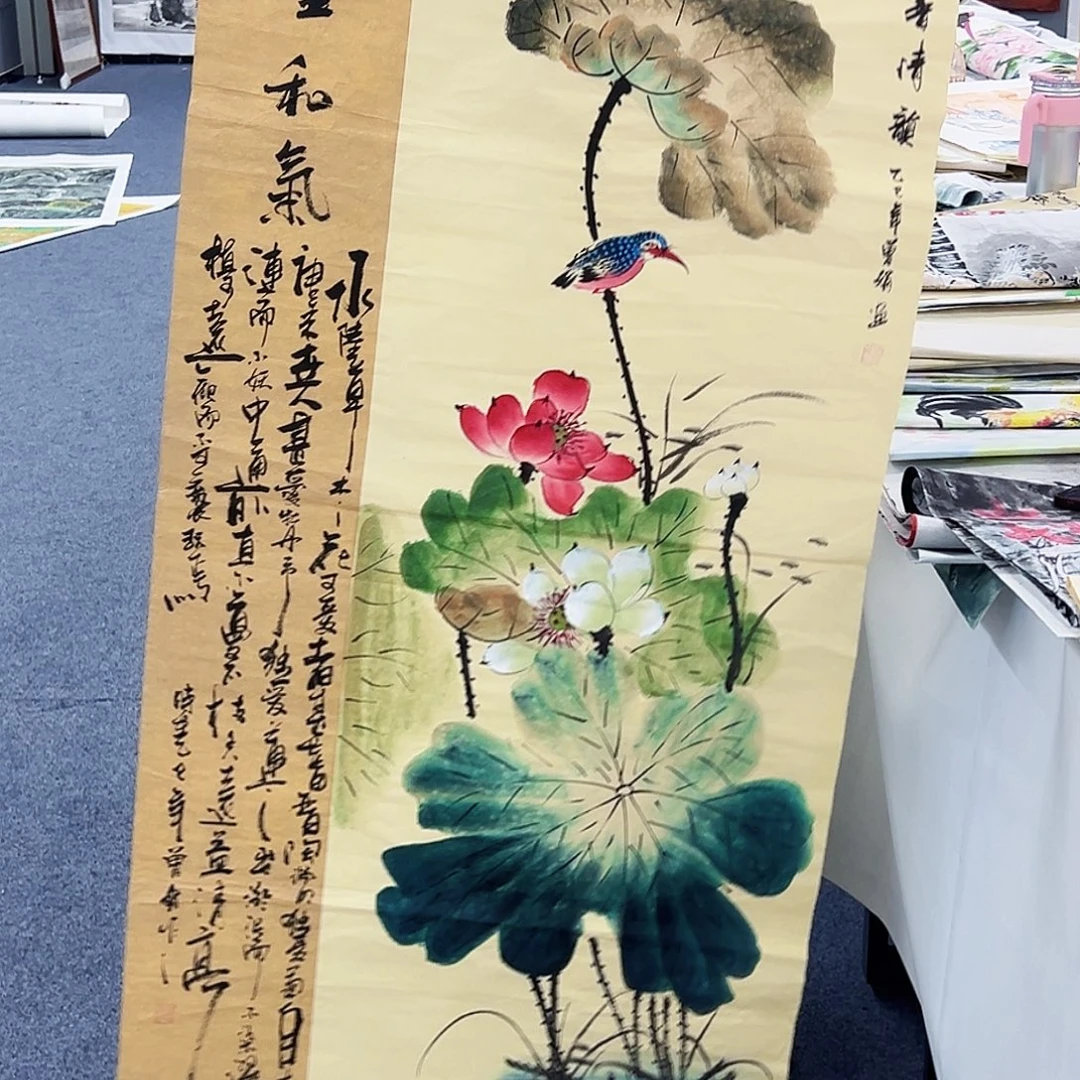 香清韻
乙巳年
和氣
水陸草木之花可愛者甚蕃晉陶淵明獨愛菊自
唐來世人甚愛牡丹予獨愛蓮之出淤泥而不染
漣而不妖中通外直不蔓不枝香遠益清亭
植可遠觀而不可褻玩焉
時在乙巳年曾